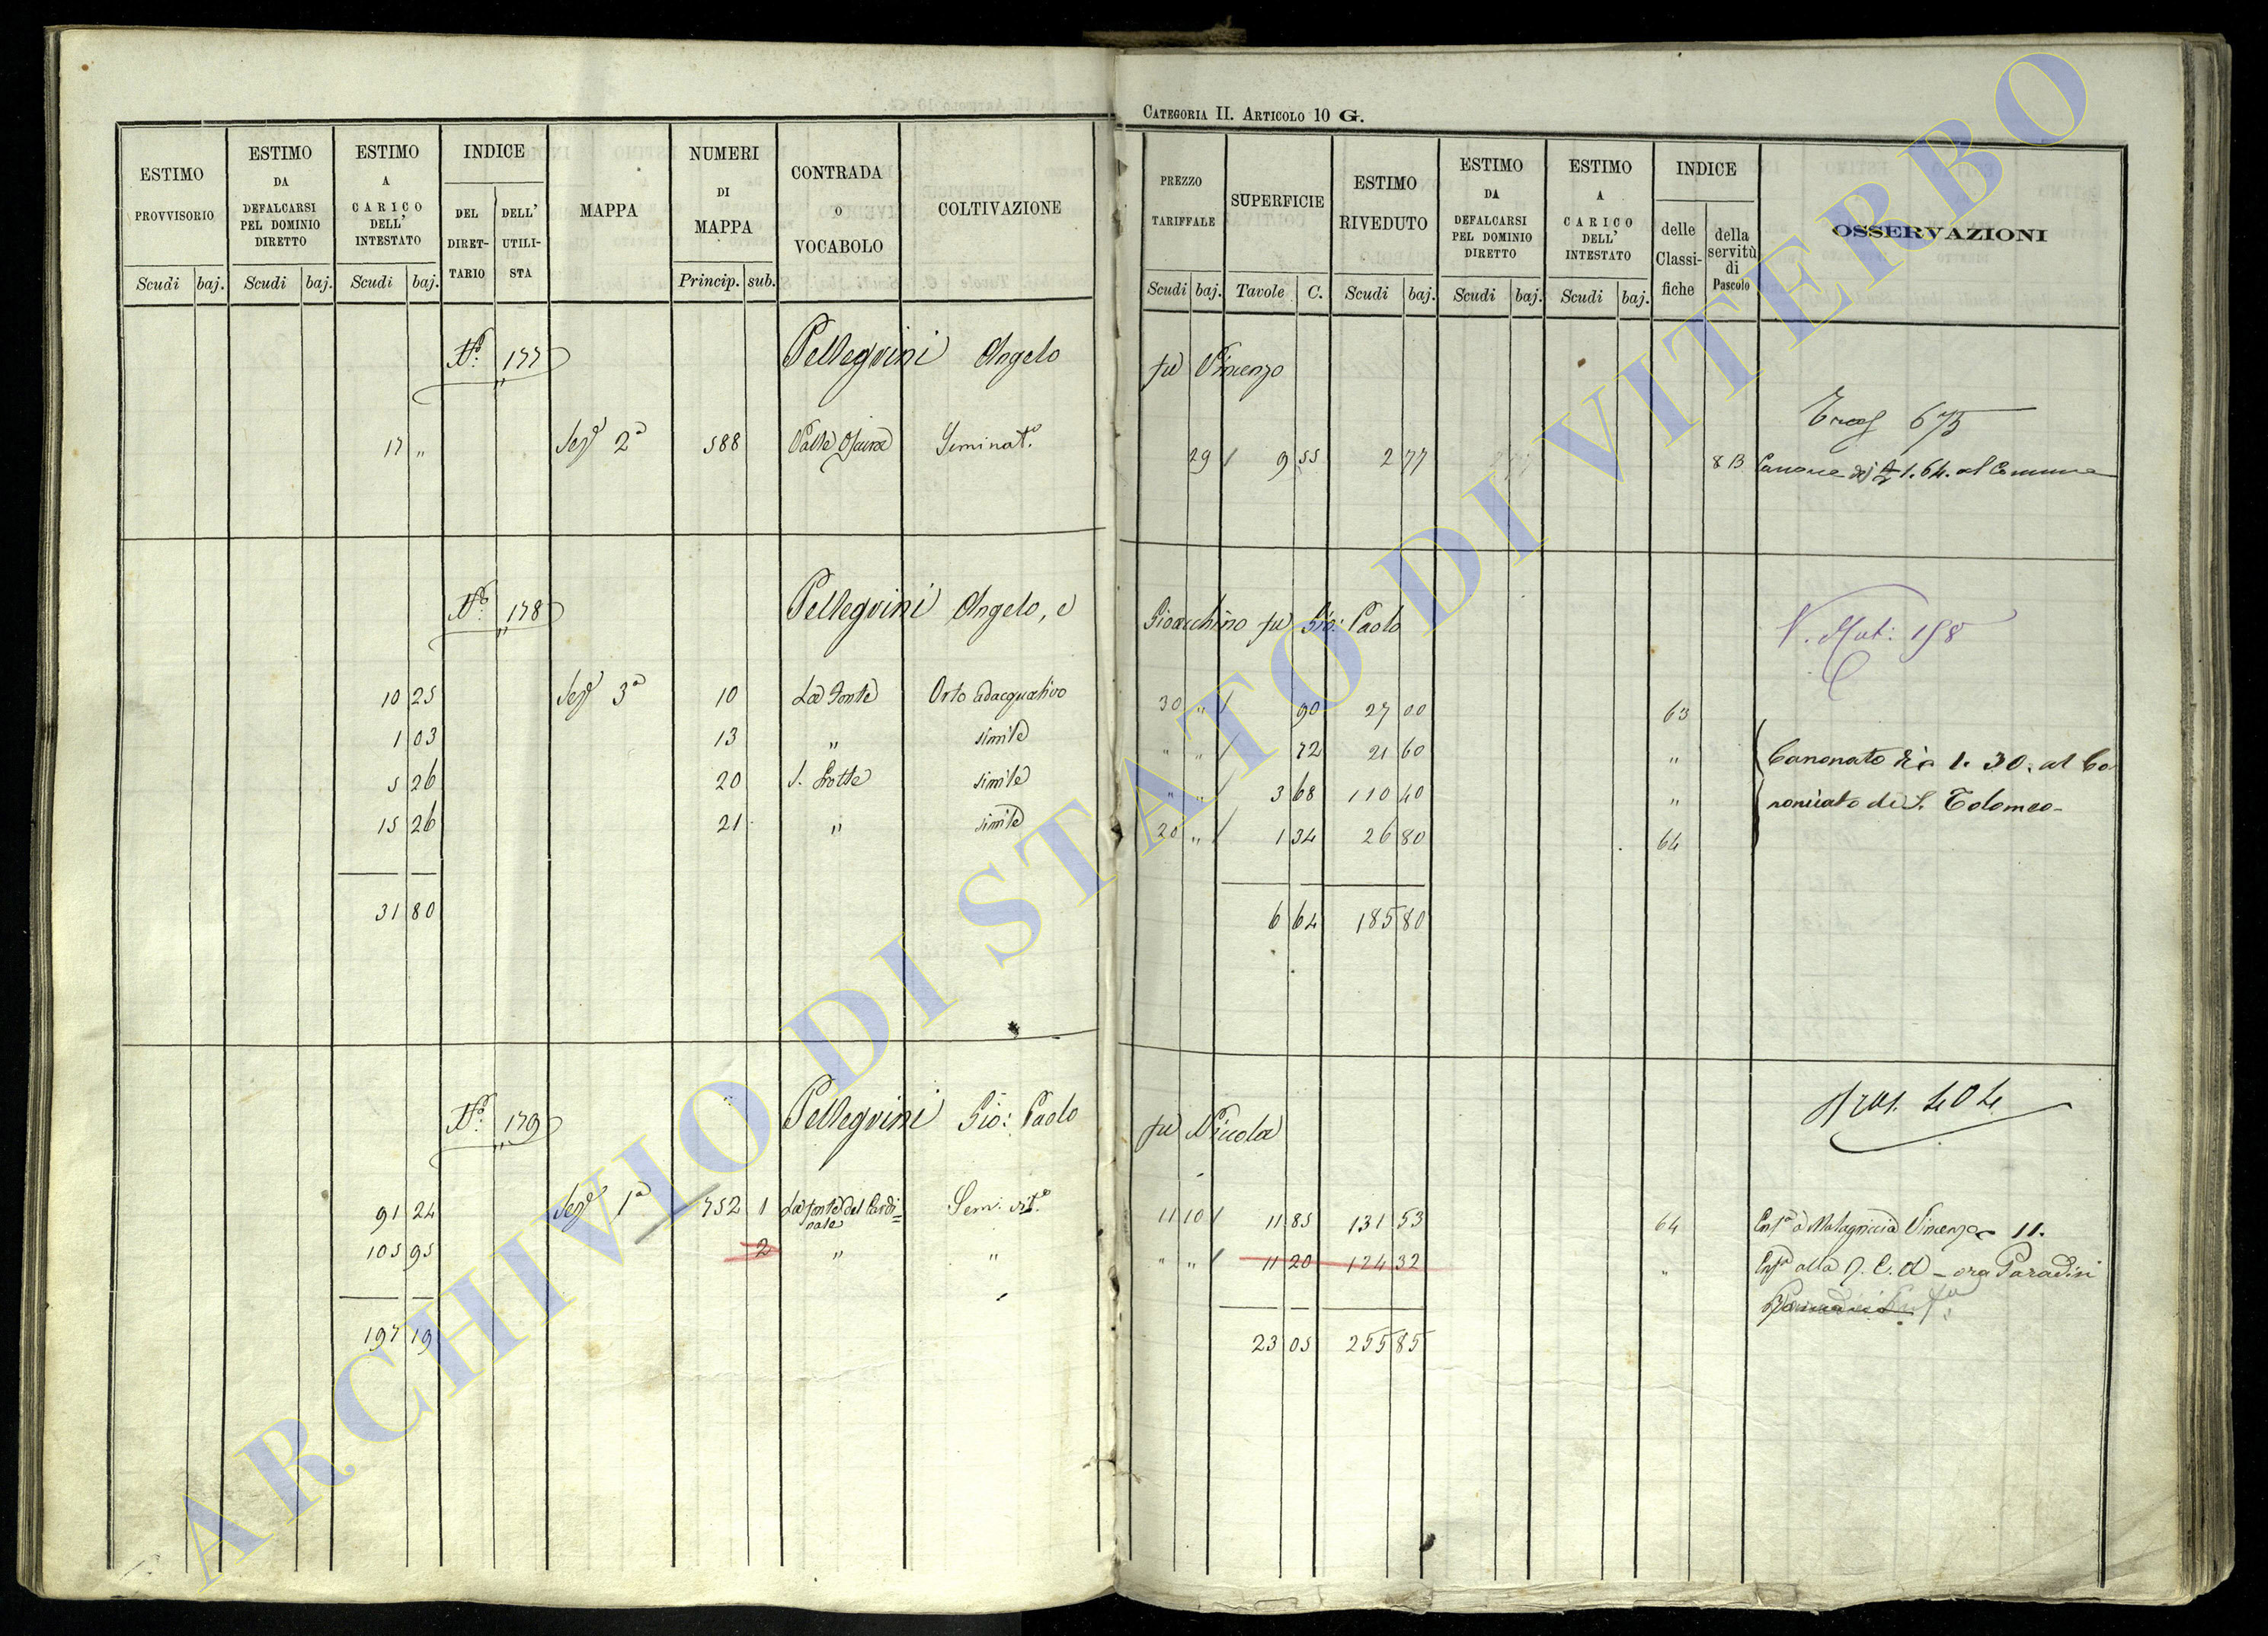 CATEGORIA II. ARTICOLO 10 G.
ESTIMO PROVVISORIO
Scudi baj.
ESTIMO DA DEFALCARSI PEL DOMINIO DIRETTO
Scudi baj.
ESTIMO A CARICO DELL' INTESTATO
Scudi baj.
INDICE
DEL DIRET-TARIO
DELL' UTILI-STA
MAPPA
NUMERI DI MAPPA
Princip. sub.
CONTRADA O VOCABOLO
COLTIVAZIONE
PREZZO TARIFFALE
Scudi baj.
SUPERFICIE
Tavole C.
ESTIMO RIVEDUTO
Scudi baj.
ESTIMO DA DEFALCARSI PEL DOMINIO DIRETTO
Scudi baj.
ESTIMO A CARICO DELL' INTESTATO
Scudi baj.
INDICE
delle Classi-fiche
della servitù di Pascolo
OSSERVAZIONI
N.° 177 Pellegrini Angelo fu Vincenzo
675
17 " Sez.e 2a 588 Valle Oscura Seminat.o 29 / 9 55 2 77 8 B Canone di 1.64. al Comune
N.° 178 Pellegrini Angelo, e Gioacchino fu Gio: Paolo
V. Mut: 158
10 25 Sez.e 3a 10 La Fonte Orto adacquativo 30 " / 90 27 00 63
1 03 13 " simile " " / 72 21 60 " Canonato di 1. 30. al Ca-
5 26 20 S. Grotte simile " " / 3 68 110 40 " nonicato di S. Tolomeo.
15 26 21 " simile 20 " / 1 34 26 80 64
31 80 6 64 185 80
N.° 179 Pellegrini Gio: Paolo fu Nicola
404
91 24 Sez.e 1a 752 1 La fonte del Cardi=nale Sem. vit.o 11 10 / 11 85 131 53 64 Enf.a a Malagricia Vincenzo 11.
105 95 2 " " " " / 11 20 124 32 " Enf.a alla - ora Paradisi
197 19 23 05 255 85
ARCHIVIO DI STATO DI VITERBO